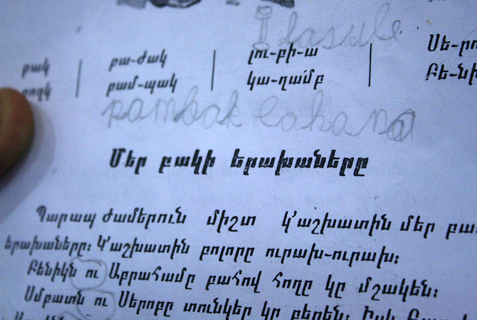 fasule
բակ բա-ժակ լու-բի-ա Սե-րո
բամ-պակ կա-ղամբ Բե-նի
pambak lahana
Մեր բակի երախաները
Պարապ ժամերուն միշտ կ՚աշխատին մեր բա
երախաները։ Կ՚աշխատին բոլորը ուրախ-ուրախ։
Բենիկն ու Աբրահամը բահով հողը կը մշակեն։
Սմբատն ու Սերոբը տունկեր կը բերեն։ Իսկ